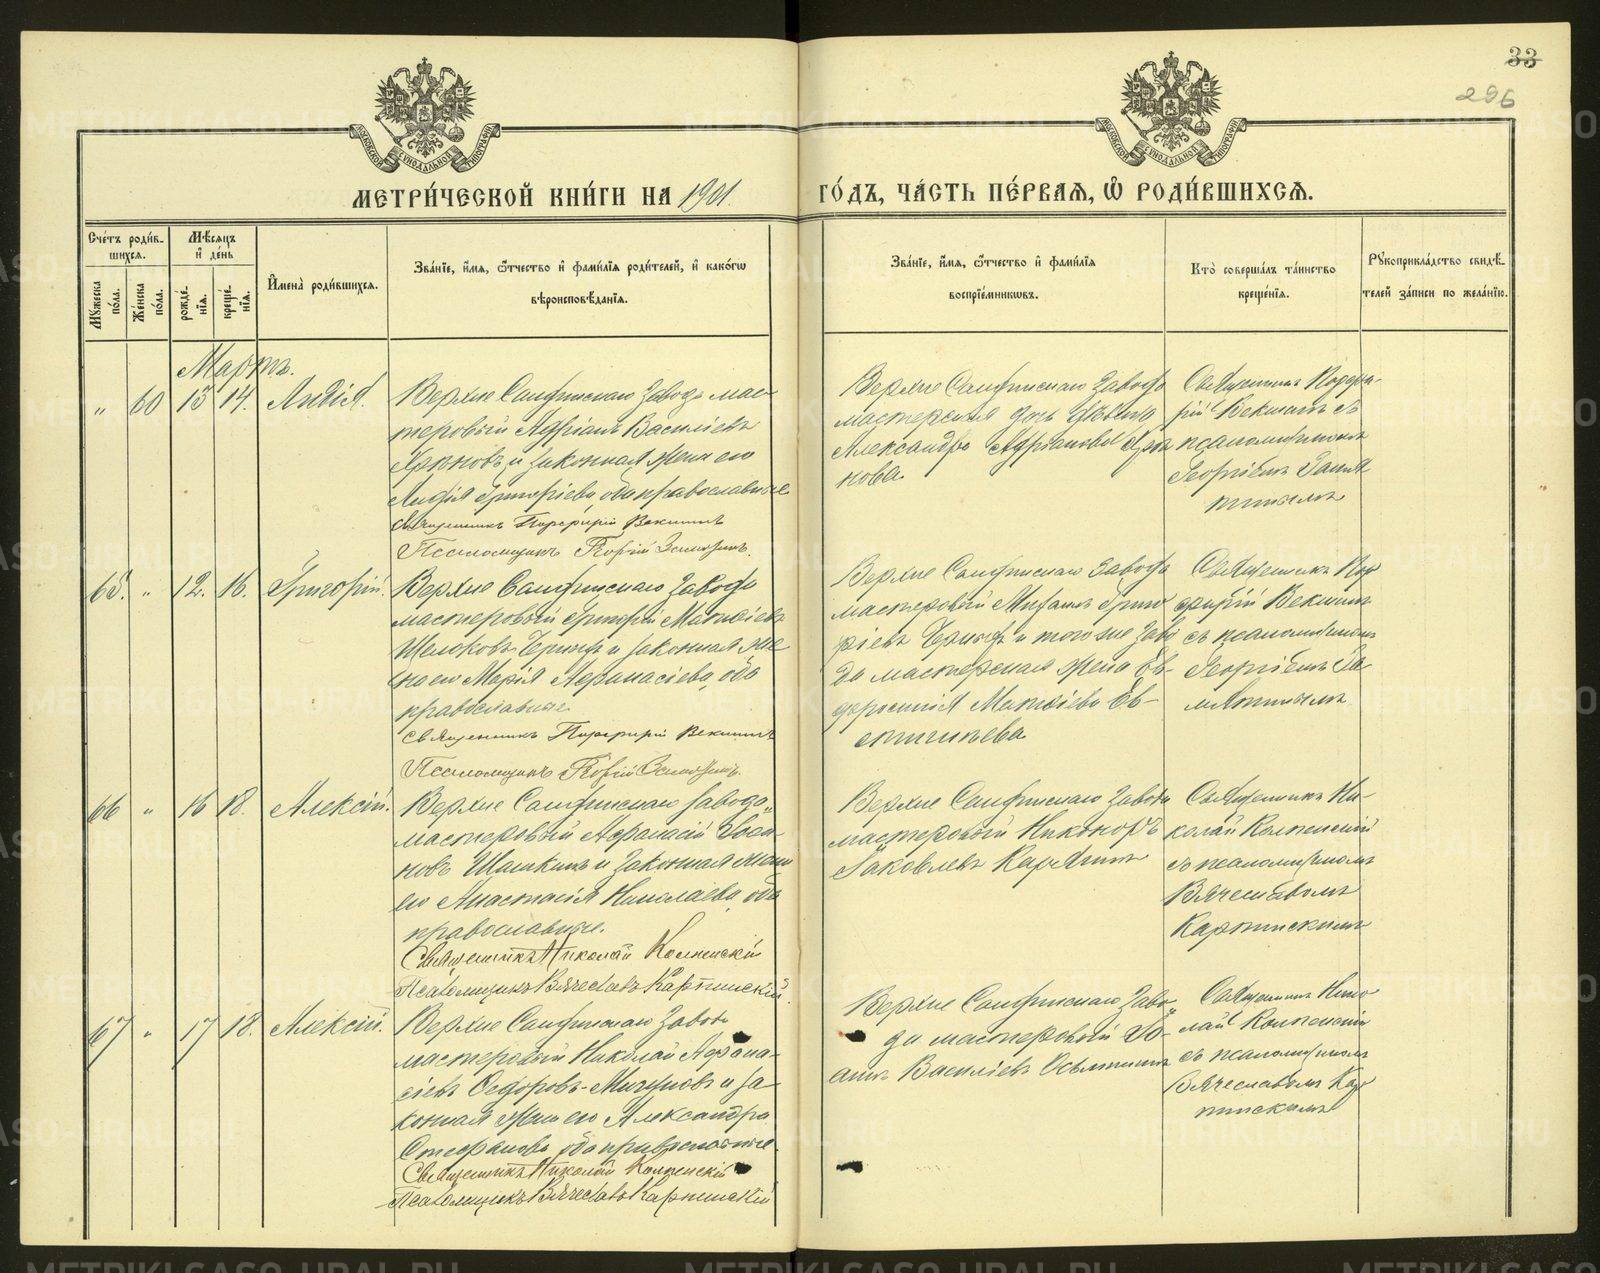 33
296
МОСКОВСКОЙ СѴНОДАЛЬНОЙ ТИПОГРАФІИ
МОСКОВСКОЙ СѴНОДАЛЬНОЙ ТИПОГРАФІИ
МЕТРИ́ЧЕСКОЙ КНИ́ГИ НА 1901. ГО́ДЪ, ЧА́СТЬ ПЕ́РВАЯ, Ѡ РОДИ́ВШИХСЯ.
Сче́тъ роди́вшихся.
Мꙋ́жеска по́ла.
Же́нска по́ла.
Мѣ́сяцъ и де́нь
рожде́нїя.
креще́нїя.
И҆мена̀ роди́вшихся.
Зва́нїе, и҆́мя, ѻ҆́тчество и҆ фами́лїя роди́телей, и҆ како́гѡ
вѣроисповѣ́данїя.
Зва́нїе, и҆́мя, ѻ҆́тчество и҆ фами́лїя
воспрїе́мникѡвъ.
Кто̀ соверша́лъ та́инство
креще́нїя.
Рꙋкоприкла́дство свидѣ́-
телей за́писи по жела́нїю.
Мартъ.
" 60 13 14. Лидія.
Верхне Салдинскаго Завода мас-
теровый Адріанъ Василіевъ
и законная жена его
Лидія Григоріева, оба православные
Священникъ Порфирій Векшинъ
Псаломщикъ Георгій
Верхне Салдинскаго Завода
мастерская дочь девица
Александра Адріанова
нова
Священникъ Порфи-
рій Векшинъ съ
псаломщикомъ
Георгіемъ
65. " 12. 16. Григорій.
Верхне Салдинскаго Завода
мастеровый Григорій Матвіевъ
Щелоковъ и законная же
на его Марія Афанасіева, оба
православные.
Священникъ Порфирій Векшинъ
Псаломщикъ Георгій
Верхне Салдинскаго Завода
мастеровый Григо
ріевъ и того же Заво
да мастерская жена Ев-
Матвіева Ев-
Священникъ Пор
фирій Векшинъ
съ псаломщикомъ
Георгіемъ
66 " 16 18. Алексій.
Верхне Салдинскаго завода
мастеровый Афанасій
новъ и законная жена
его Анастасія Николаева, оба
православные.
Священникъ Николай
Псаломщикъ Вячеславъ Карпинскій.
Верхне Салдинскаго Завода
мастеровый Никоноръ
Іаковлевъ
Священникъ Ни-
колай
съ псаломщикомъ
Вячеславомъ
Карпинскимъ
67 " 17 18. Алексій.
Верхне Салдинскаго Завода
мастеровый Николай Афана-
сіевъ Федоровъ-Мичуровъ и за
конная жена его Александра
Стефанова, оба православные.
Священникъ Николай
Псаломщикъ Вячеславъ Карпинскій
Верхне Салдинскаго Заво
да мастеровый Іо-
аннъ Василіевъ
Священникъ Нико
лай
съ псаломщикомъ
Вячеславомъ Кар
пинскимъ
METRIKI.GASO-URAL.RU